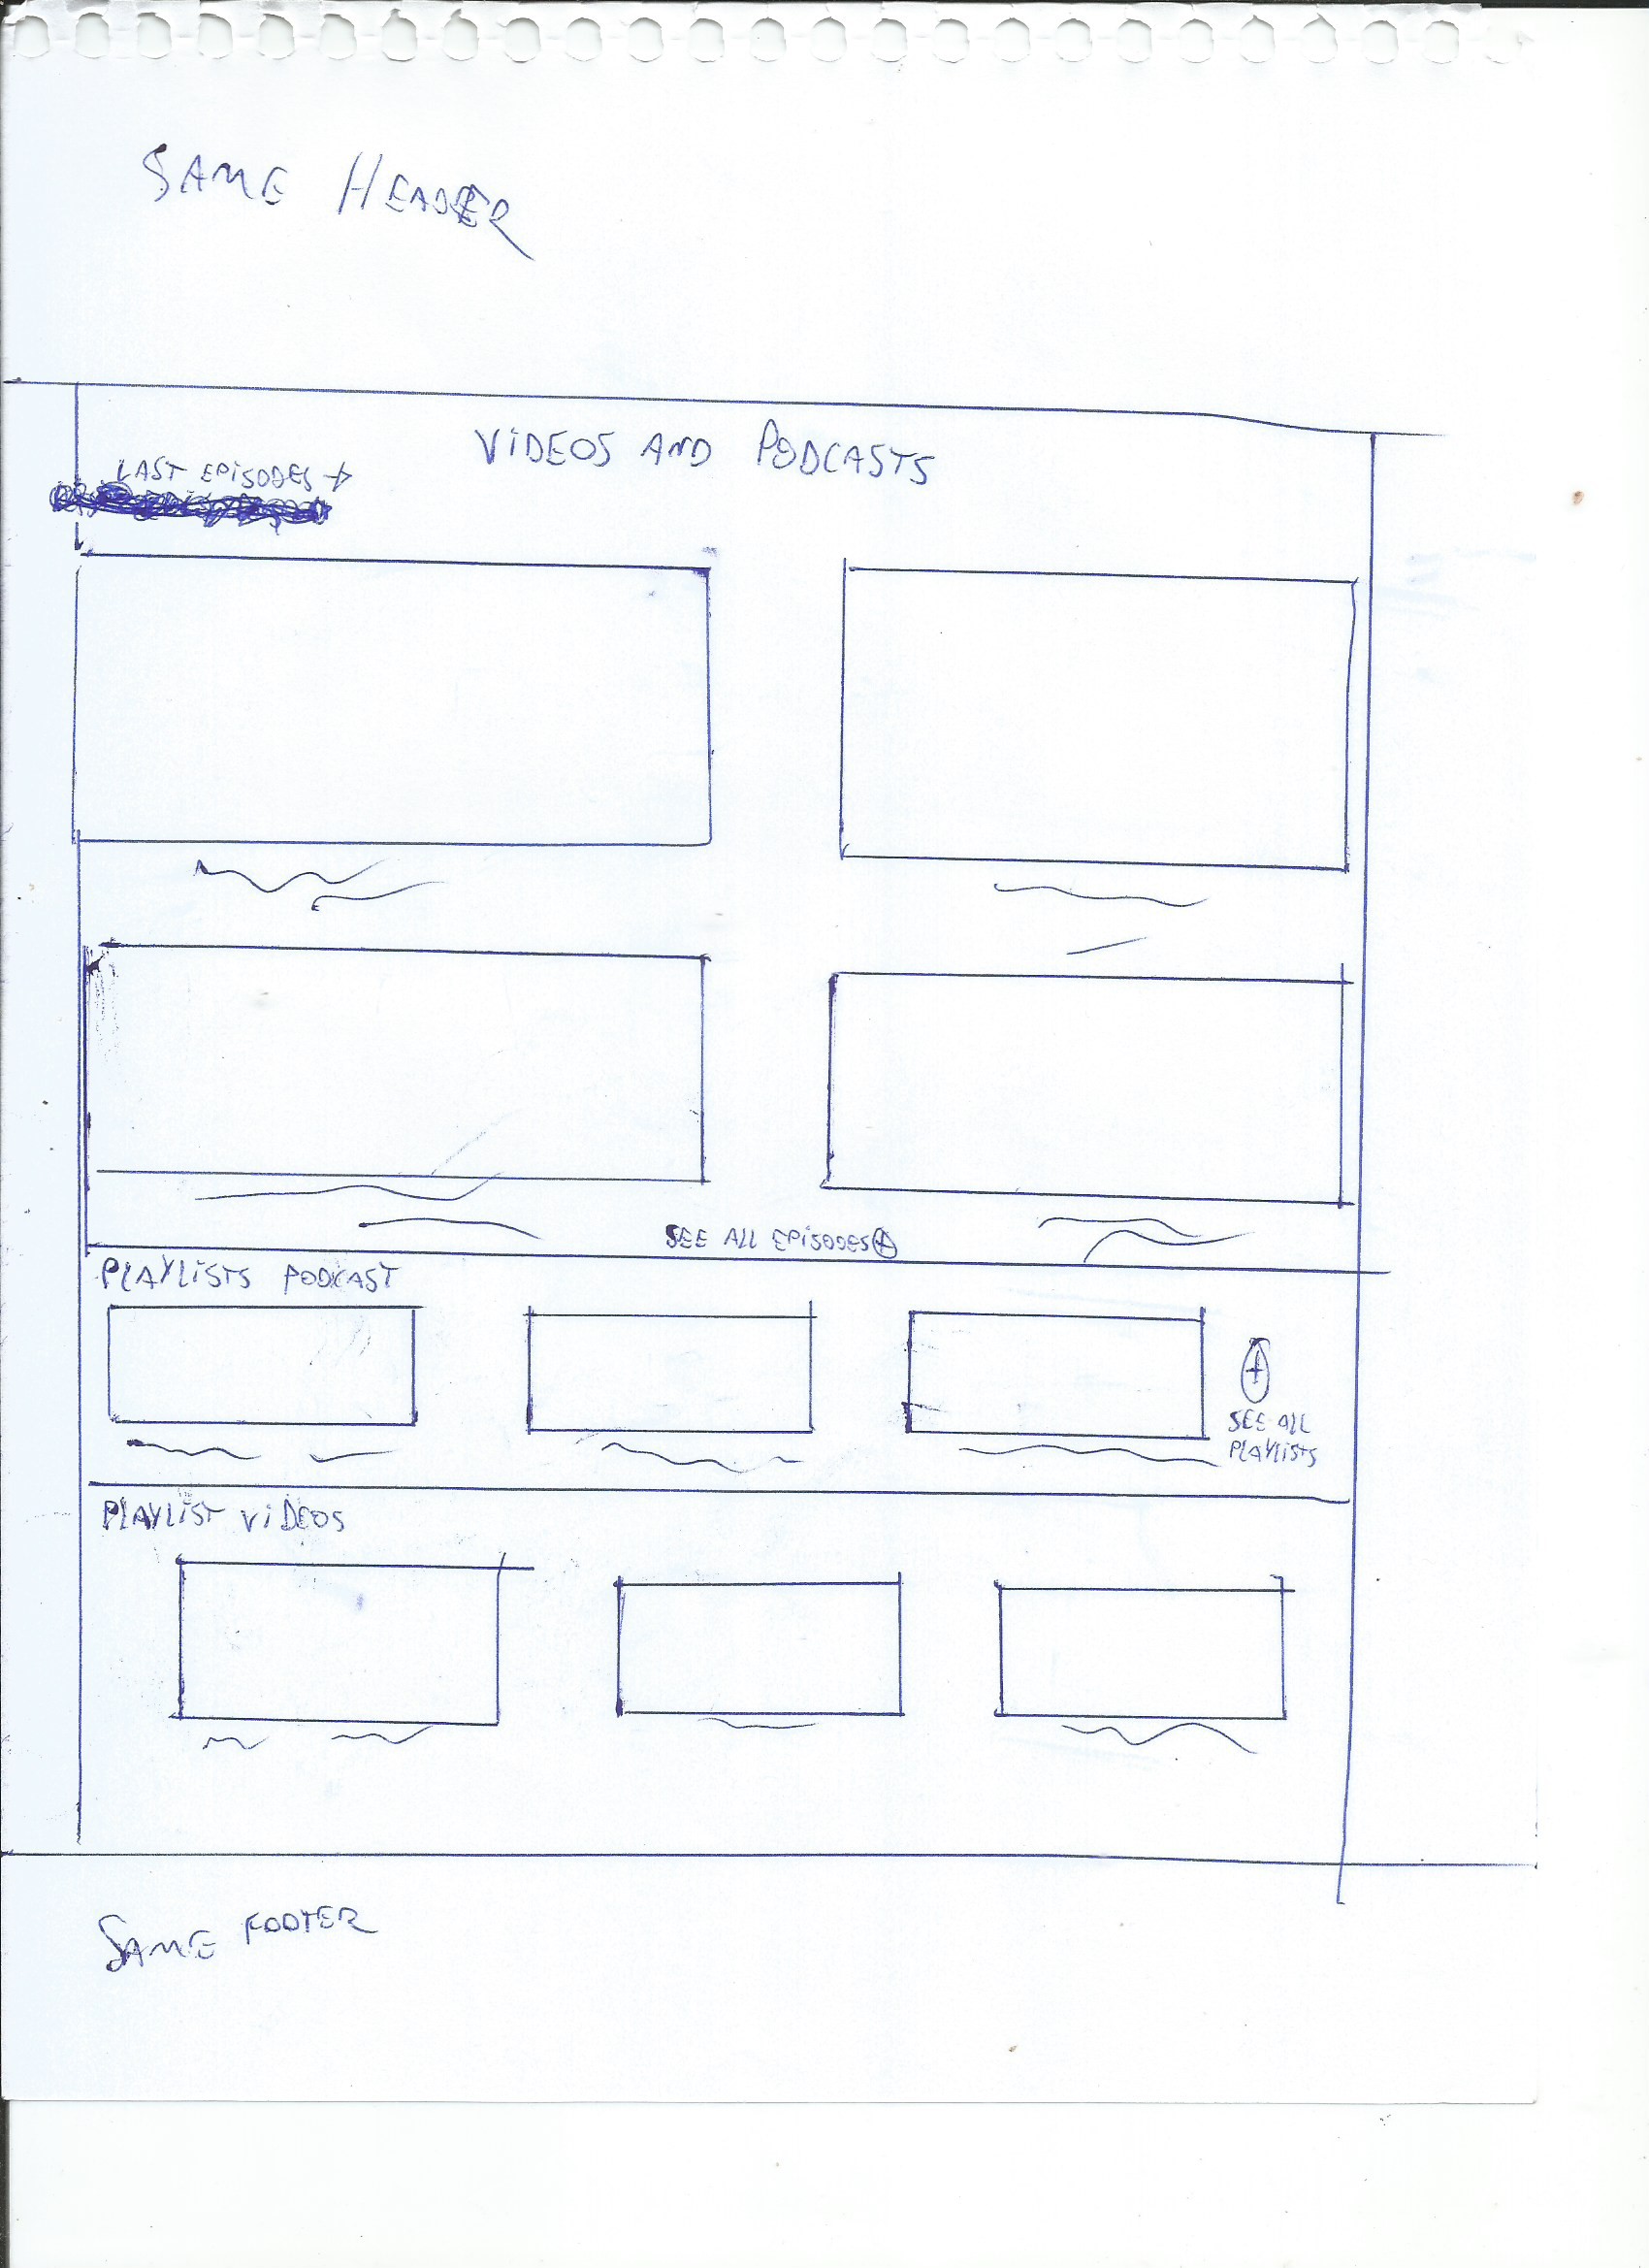 SAME HEADER
VIDEOS AND PODCASTS
LAST EPISODES +
SEE ALL EPISODES +
PLAYLISTS PODCAST
+
SEE ALL
PLAYLISTS
PLAYLIST VIDEOS
SAME FOOTER